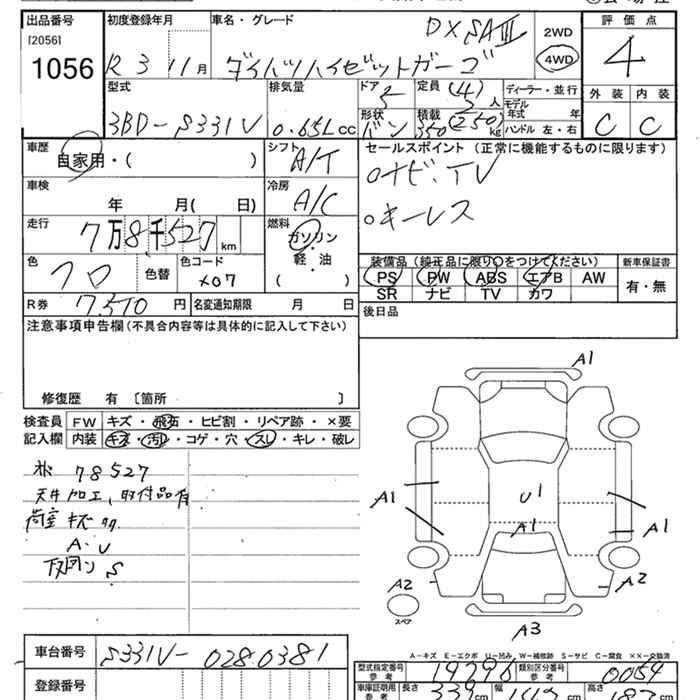 出品番号
[2056]
1056
初度登録年月
R 3 11月
車名・グレード
DX SAⅢ
ダイハツハイゼットカーゴ
2WD
4WD
評価点
4
外装 内装
C C
型式
3BD-S331V
排気量
0.65L cc
ドア
5
定員 (4)
人
形状
バン
積載 (250)
350 kg
ディーラー・並行
モデル
年式 年
ハンドル 左・右
車歴
自家用・( )
シフト
A/T
セールスポイント(正常に機能するものに限ります)
○ナビ・TV
○キーレス
車検
年 月( 日)
冷房
A/C
走行
7万8千527km
燃料
ガソリン
・
軽・油
( )
色
クロ
色替
色コード
X07
装備品(純正品に限り○をつけてください)
PS PW ABS エアB AW
SR ナビ TV カワ
新車保証書
有・無
R券 7,510円
名変通知期限 月 日
後日品
注意事項申告欄(不具合内容等は具体的に記入して下さい)
修復歴 有〔箇所 〕
検査員
記入欄
FW キズ・飛石・ヒビ割・リペア跡・×要
内装 キズ・汚レ・コゲ・穴・スレ・キレ・破レ
78527
天井加工、取付品有
荷室キズ多
A・U
下廻リン S
A1
A1
U1
A1
A1
A2
A2
スペア
A3
A-キズ E-エクボ U-凹み W-補修跡 S-サビ C-腐食 XX-交換済
車台番号
S331V-0280381
登録番号
型式指定番号
参考
19296
類別区分番号
参考
0054
車庫証明用
参考
長さ
339cm
幅
147cm
高さ
187cm